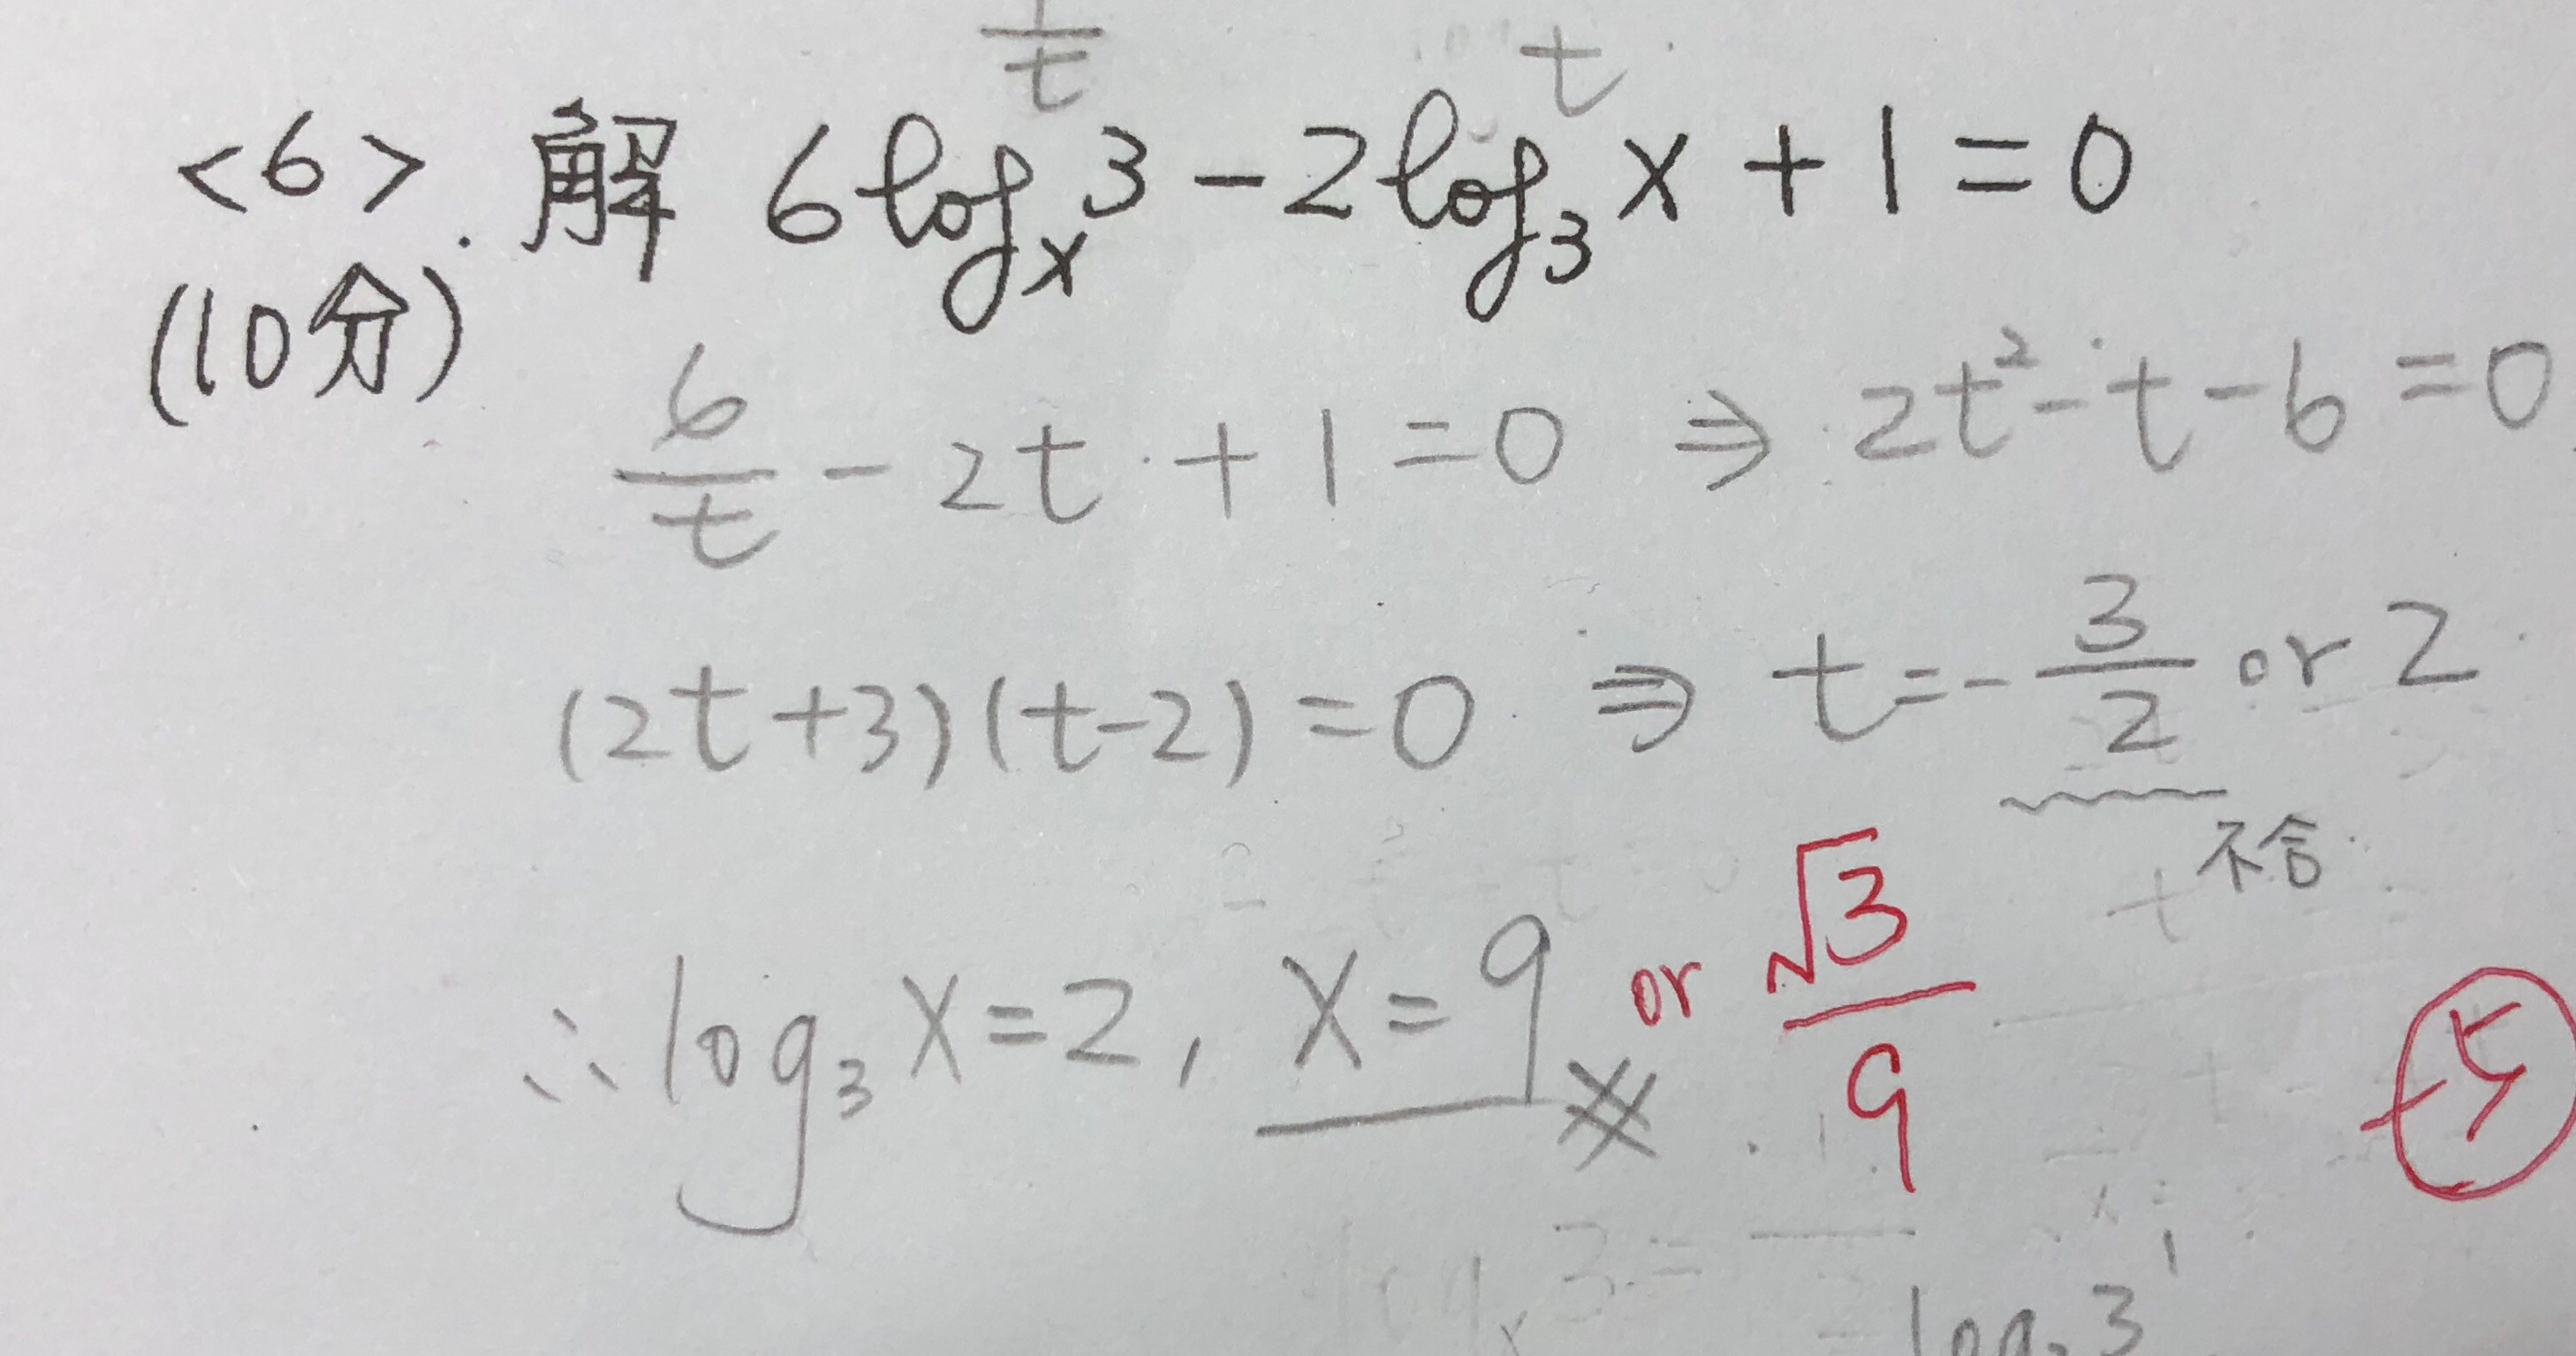 1/t t
<6>. 解 6log_x 3 - 2log_3 x + 1 = 0
(10分)
6/t - 2t + 1 = 0 ⇒ 2t² - t - 6 = 0
(2t+3)(t-2) = 0 ⇒ t = -3/2 or 2
不合
∴ log_3 x = 2, x = 9 or √3/9
-5
log 3